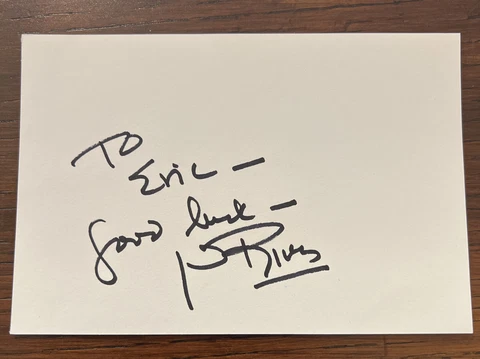 To
Eric —
Good luck —
Rivers